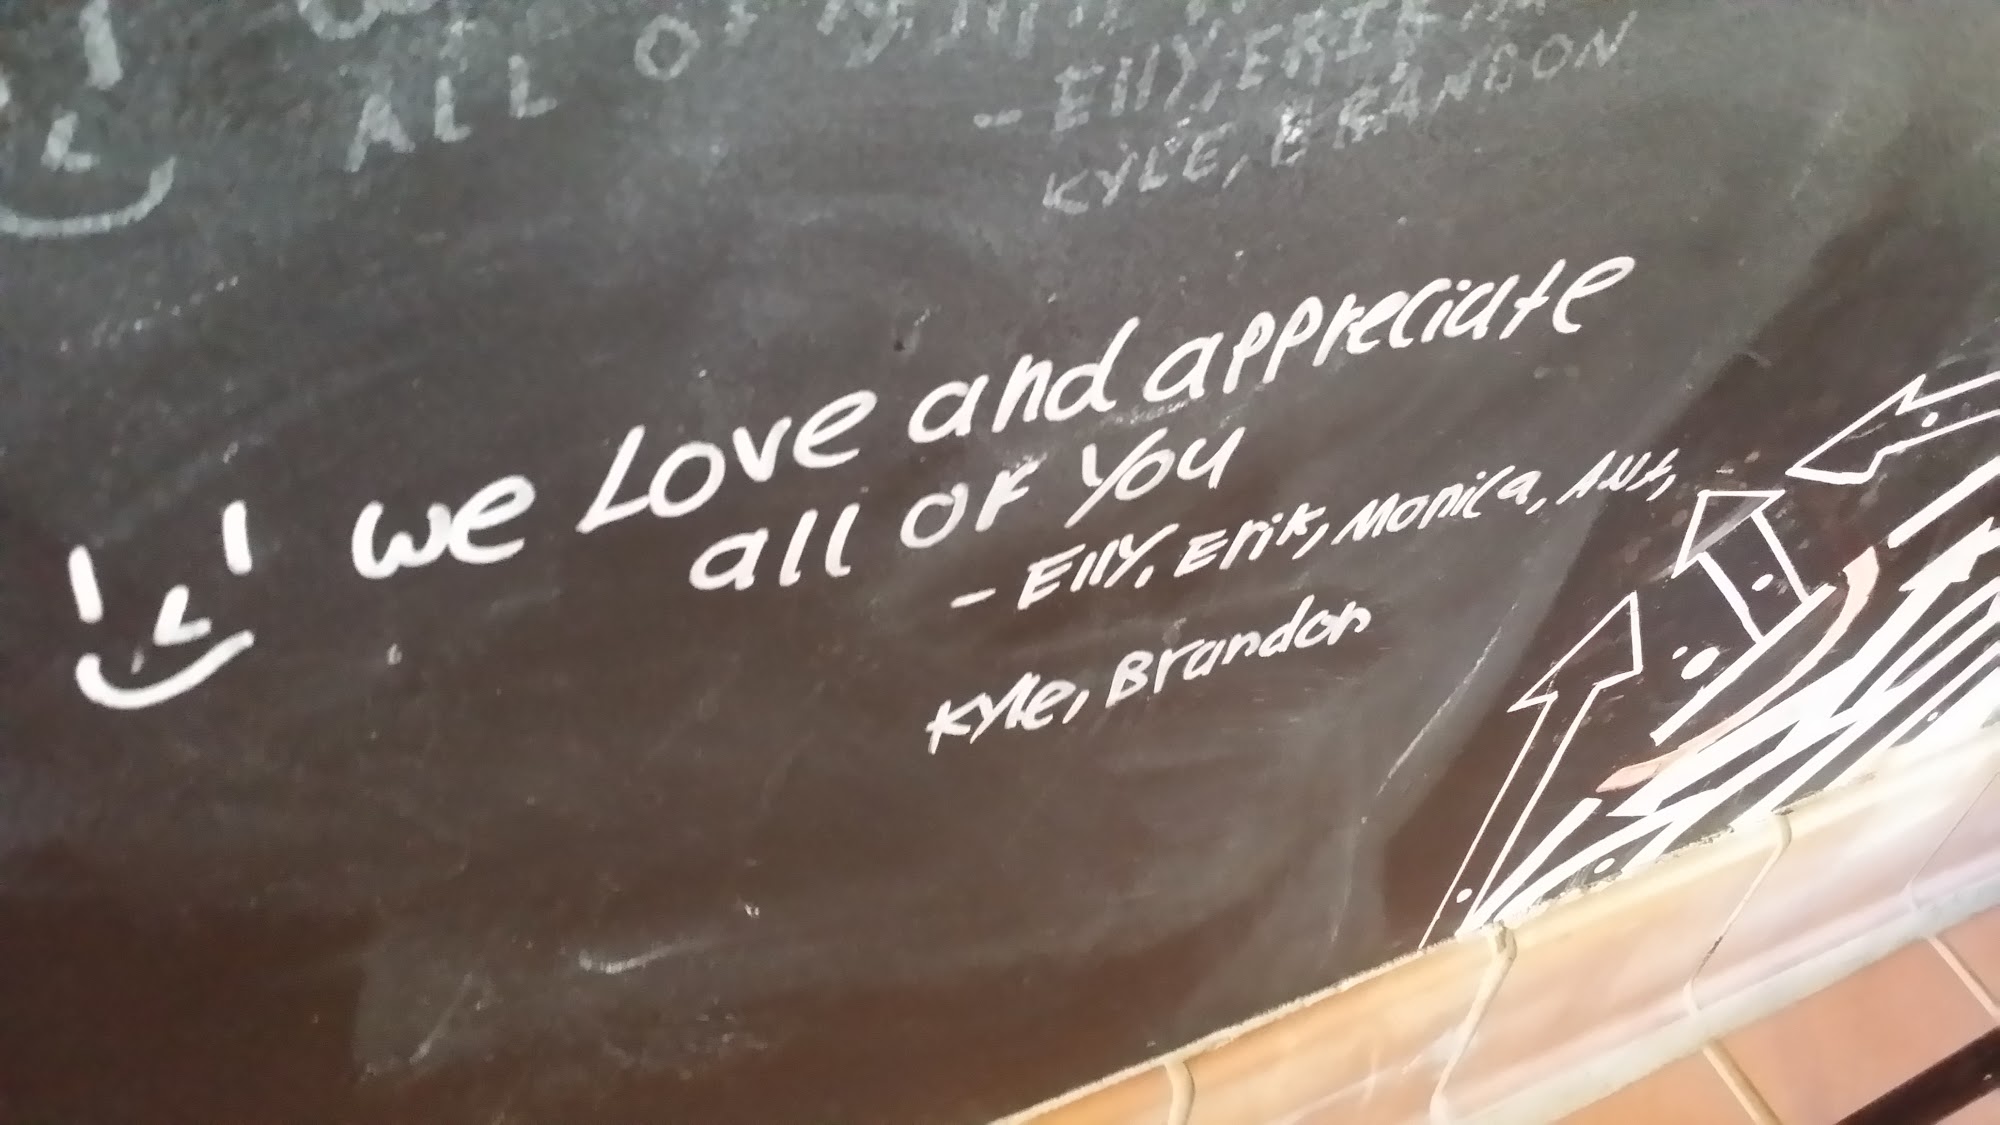 ALL OF
- Elly, ERIK
KYLE, BRANDON
we Love and appreciate
all of You
- Elly, Erik, Monica,
Kyle, Brandon